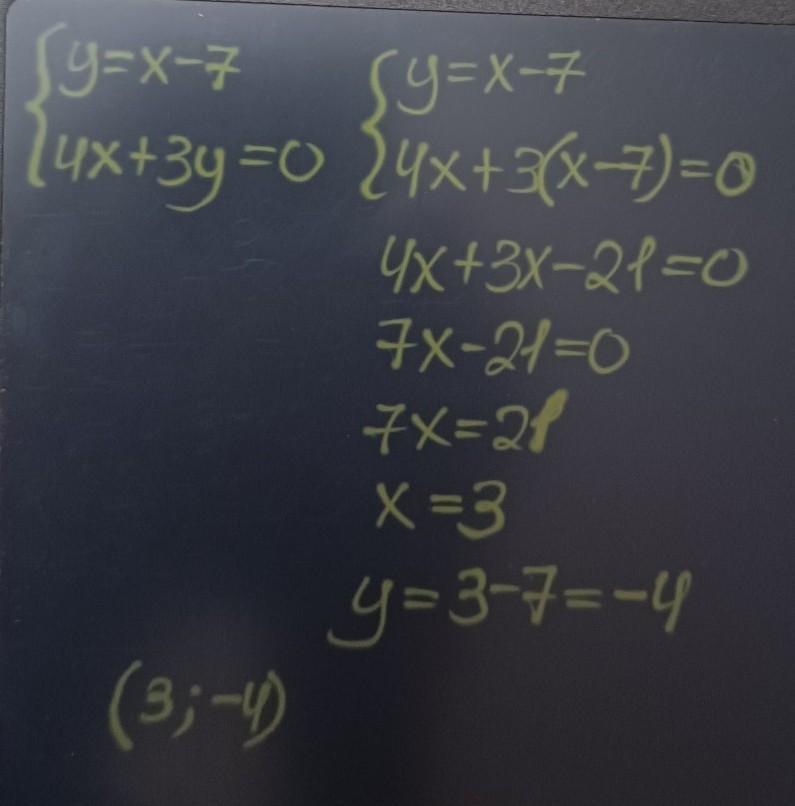 {y=x-7 {y=x-7
4x+3y=0 4x+3(x-7)=0
4x+3x-21=0
7x-21=0
7x=21
x=3
y=3-7=-4
(3;-4)